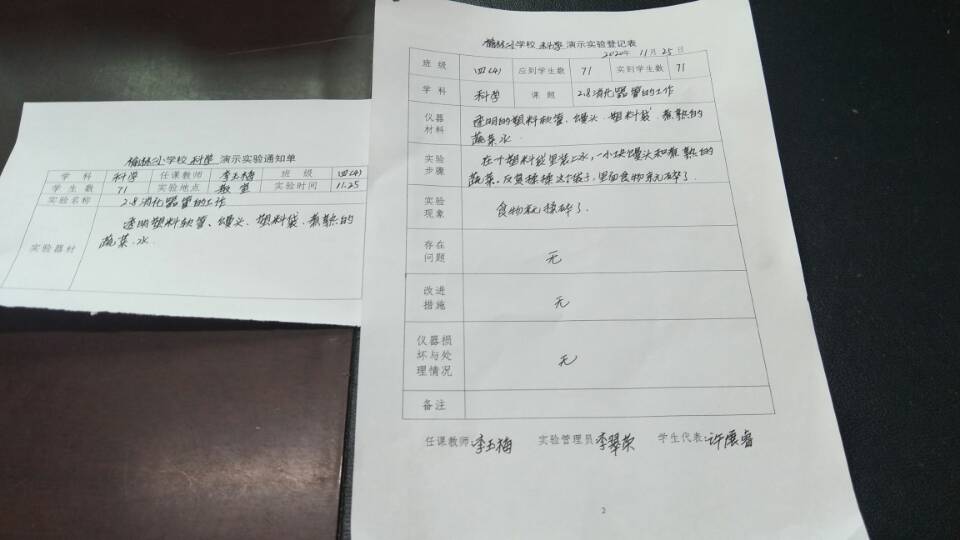 小学校 科学 演示实验通知单
学科 科学 任课教师 李玉梅 班级 四(4)
学生数 71 实验地点 教室 实验时间 11.25
实验名称 2.8消化器官的工作
实验器材 透明塑料软管、馒头、塑料袋、煮熟的
蔬菜、水
小学校 科学 演示实验登记表
2020年 11月 25日
班级 四(4) 应到学生数 71 实到学生数 71
学科 科学 课题 2.8消化器官的工作
仪器材料 透明的塑料软管、馒头、塑料袋、煮熟的
蔬菜、水
实验步骤 在个塑料袋里装上水,一小块馒头和煮熟的
蔬菜。反复揉捶这个袋子,里面食物就碎了。
实验现象 食物就揉碎了。
存在问题 无
改进措施 无
仪器损坏与处理情况 无
备注
任课教师:李玉梅 实验管理员:李翠荣 学生代表:许展睿
2